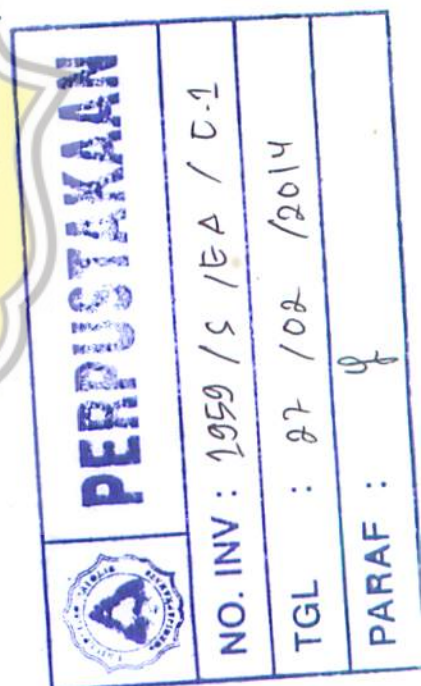 PERPUSTAKAAN
NO. INV : 1959 / S / EA / C-1
TGL : 27 / 02 / 2014
PARAF :